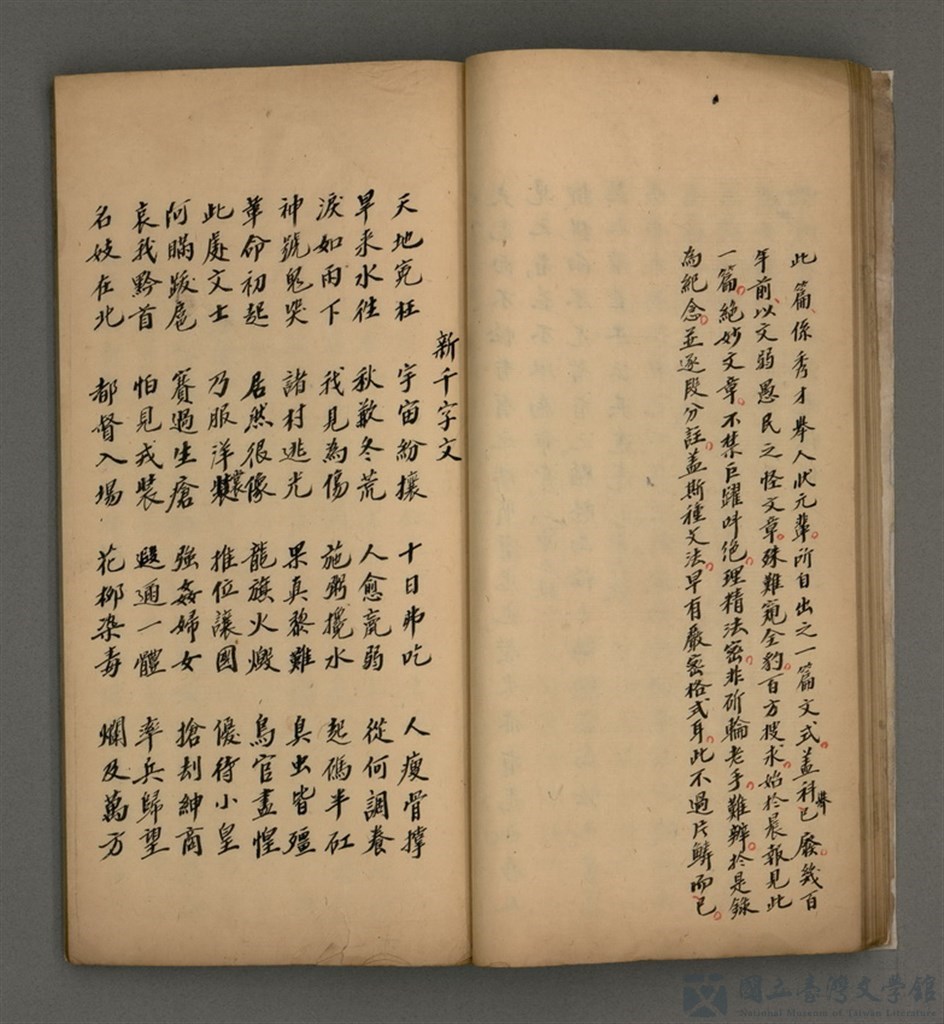 此篇係秀才舉人狀元輩所自出之一篇文式蓋科舉已廢幾百
年前以文弱愚民之怪文章殊難窺全豹百方搜求始於晨報見此
一篇絕妙文章不禁巨躍叫絕理精法密非斫輪老手難辦於是錄
為紀念並逐段分註蓋斯種文法早有嚴密格式耳此不過片鱗而已
新千字文
天地冤枉 宇宙紛攘 十日弗吃 人瘦骨撐
旱來水往 秋歉冬荒 人愈羸弱 從何調養
淚如雨下 我見為傷 施粥攪水 起碼半缸
神號鬼哭 諸村逃光 果真黎難 臭虫皆殭
革命初起 居然很像 龍旗火燬 烏官盡惶
此處文士 乃服洋裝 推位讓國 優待小皇
阿瞞跋扈 賽過生瘡 強姦婦女 搶刦紳商
哀我黔首 怕見戎裝 遐邇一體 率兵歸望
名妓在北 都督入場 花柳染毒 爛及萬方
國立臺灣文學館
National Museum of Taiwan Literature